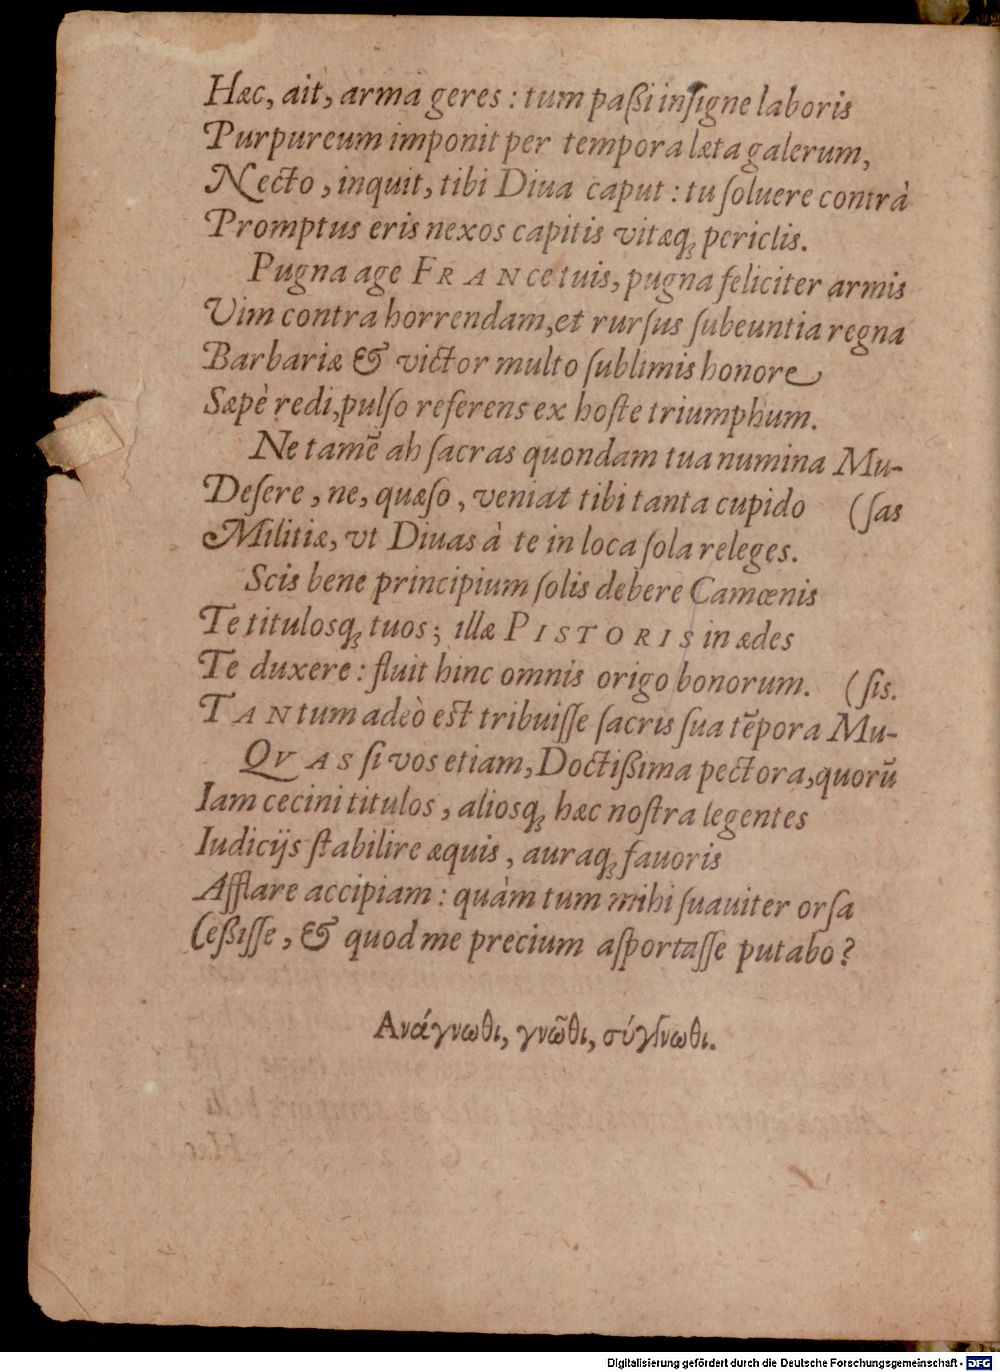 Hæc, ait, arma geres : tum paßi inſigne laboris
Purpureum imponit per tempora læta galerum,
Necto, inquit, tibi Diua caput : tu ſoluere contrà
Promptus eris nexos capitis vitæq; periclis.
Pugna age FRANce tuis, pugna feliciter armis
Vim contra horrendam, et rurſus ſubeuntia regna
Barbariæ & victor multo ſublimis honore
Sæpè redi, pulſo referens ex hoſte triumphum.
Ne tamẽ ah ſacras quondam tua numina Mu-
Deſere, ne, quæſo, veniat tibi tanta cupido (ſas
Militiæ, vt Diuas à te in loca ſola releges.
Scis bene principium ſolis debere Camœnis
Te titulosq; tuos; illæ PISTORIS in ædes
Te duxere : fluit hinc omnis origo bonorum. (ſis.
TANtum adeò est tribuiſſe ſacris ſua tẽpora Mu-
QVAS ſi vos etiam, Doctißima pectora, quorũ
Iam cecini titulos, aliosq; hæc noſtra legentes
Iudicijs ſtabilire æquis, auraq; fauoris
Afflare accipiam : quàm tum mihi ſuauiter orſa
Ceßiſſe, & quod me precium aſportaſſe putabo?
Ανάγνωθι, γνῶθι, σύγγνωθι.
Digitalisierung gefördert durch die Deutsche Forschungsgemeinschaft - DFG